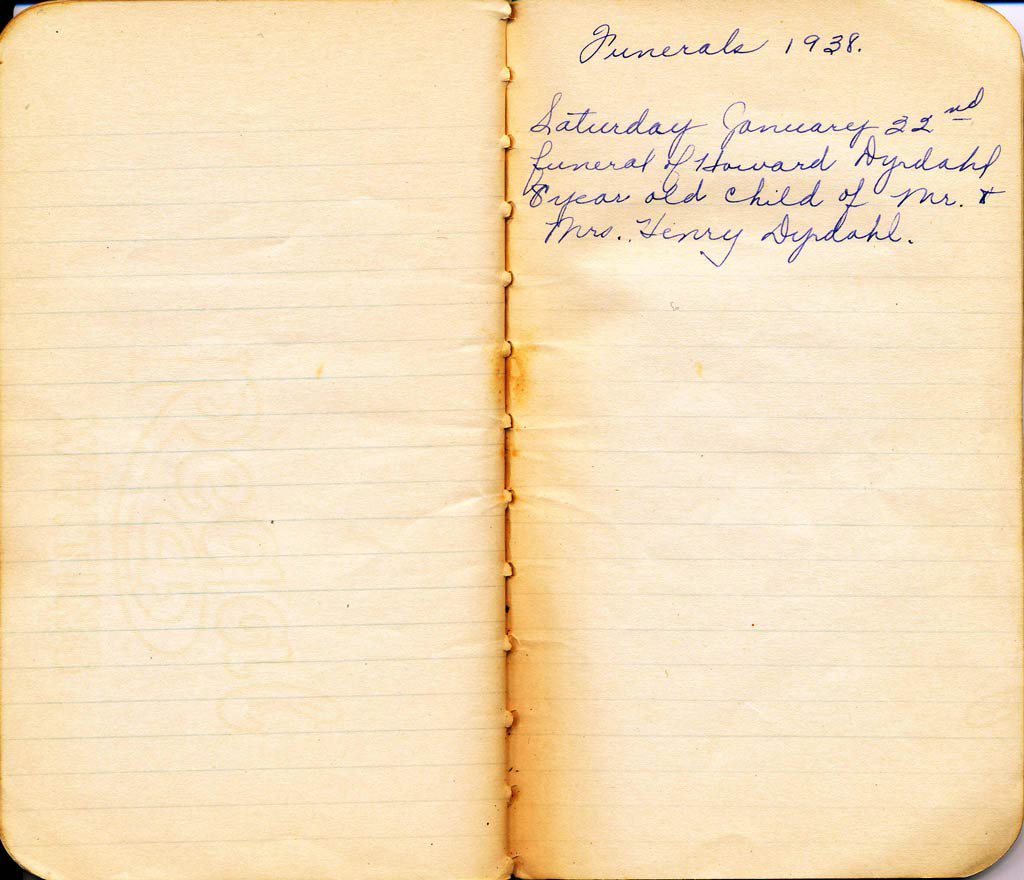 Funerals 1938.
Saturday January 22nd
funeral of Howard Dyrdahl
8 year old child of Mr. &
Mrs. Henry Dyrdahl.